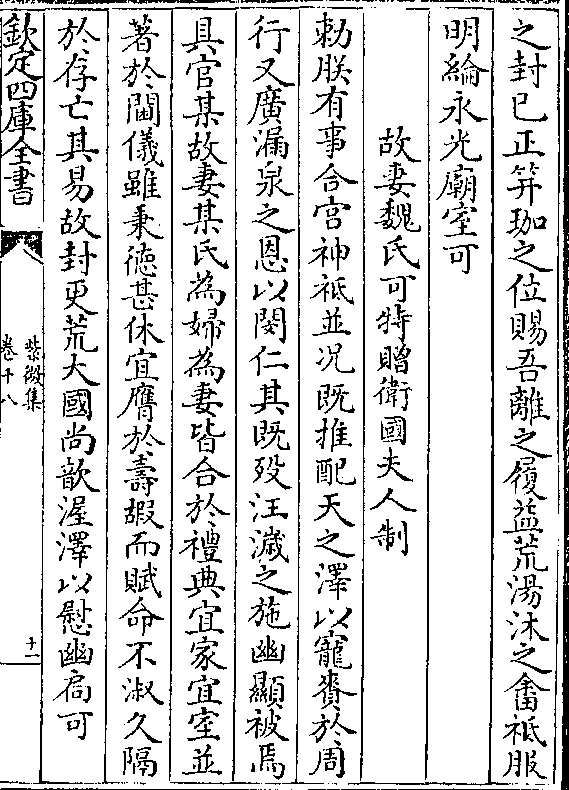 之封已正笄珈之位賜吾離之履益荒湯沐之畬祗服
明綸永光廟室可
故妻魏氏可特贈衛國夫人制
勅朕有事合宮神祗並况既推配天之澤以寵賚於周
行又廣漏泉之恩以閔仁其既殁汪濊之施幽顯被焉
具官某故妻某氏為婦為妻皆合於禮典宜家宜室並
著於閫儀雖秉徳甚休宜膺於壽嘏而賦命不淑久隔
於存亡其易故封更荒大國尚歆渥澤以慰幽扃可
欽定四庫全書
紫微集
卷十八
十一